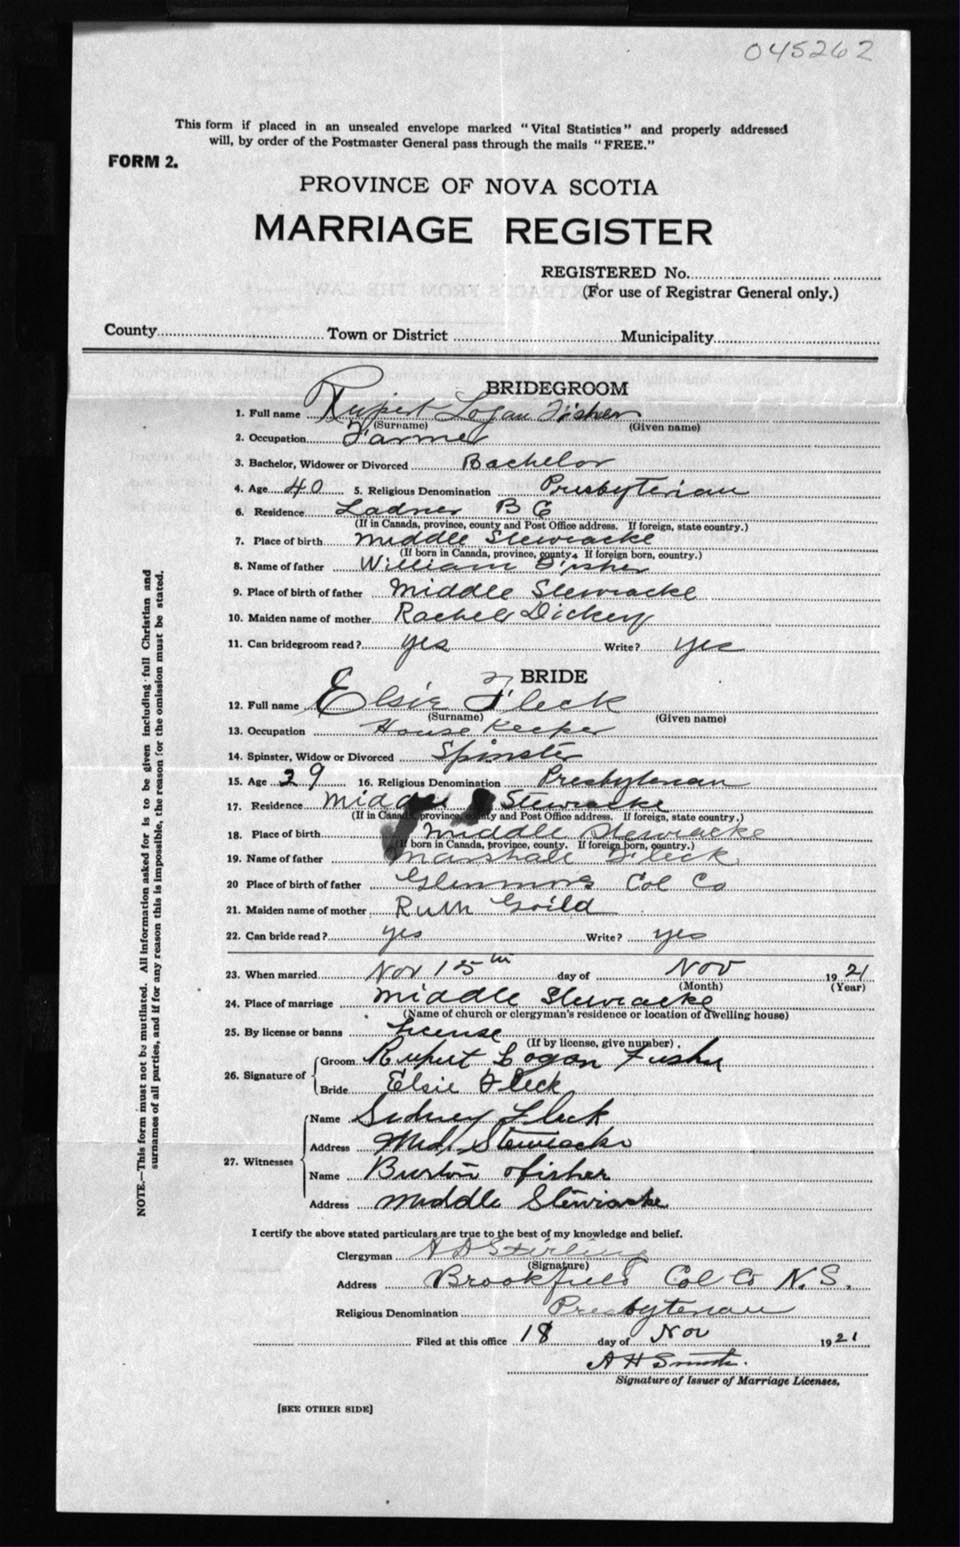 045262
This form if placed in an unsealed envelope marked "Vital Statistics" and properly addressed
will, by order of the Postmaster General pass through the mails "FREE."
FORM 2.
PROVINCE OF NOVA SCOTIA
MARRIAGE REGISTER
REGISTERED No.
(For use of Registrar General only.)
County Town or District Municipality
BRIDEGROOM
1. Full name Rupert Logan Fisher
(Surname) (Given name)
2. Occupation Farmer
3. Bachelor, Widower or Divorced Bachelor
4. Age 40 5. Religious Denomination Presbyterian
6. Residence Ladner B C
(If in Canada, province, county and Post Office address. If foreign, state country.)
7. Place of birth Middle Stewiacke
(If born in Canada, province, county. If foreign born, country.)
8. Name of father William Fisher
9. Place of birth of father Middle Stewiacke
10. Maiden name of mother Rachel Dickey
11. Can bridegroom read? yes Write? yes
BRIDE
12. Full name Elsie Fleck
(Surname) (Given name)
13. Occupation House Keeper
14. Spinster, Widow or Divorced Spinster
15. Age 29 16. Religious Denomination Presbyterian
17. Residence Middle Stewiacke
(If in Canada, province, county and Post Office address. If foreign, state country.)
18. Place of birth Middle Stewiacke
(If born in Canada, province, county. If foreign born, country.)
19. Name of father Marshall Fleck
20 Place of birth of father Col Co
21. Maiden name of mother Ruth
22. Can bride read? yes Write? yes
23. When married Nov 15th day of Nov 1921
(Month) (Year)
24. Place of marriage Middle Stewiacke
(Name of church or clergyman's residence or location of dwelling house)
25. By license or banns License
(If by license, give number)
26. Signature of Groom Rupert Logan Fisher
Bride Elsie Fleck
27. Witnesses Name Sidney Fleck
Address Mid. Stewiacke
Name Burton Fisher
Address Middle Stewiacke
I certify the above stated particulars are true to the best of my knowledge and belief.
Clergyman A D Stirling
(Signature)
Address Brookfield Col Co N.S.
Religious Denomination Presbyterian
Filed at this office 18 day of Nov 1921
A H Smith.
Signature of Issuer of Marriage Licenses.
[SEE OTHER SIDE]
NOTE.—This form must not be mutilated. All information asked for is to be given including full Christian and
surnames of all parties, and if for any reason this is impossible, the reason for the omission must be stated.